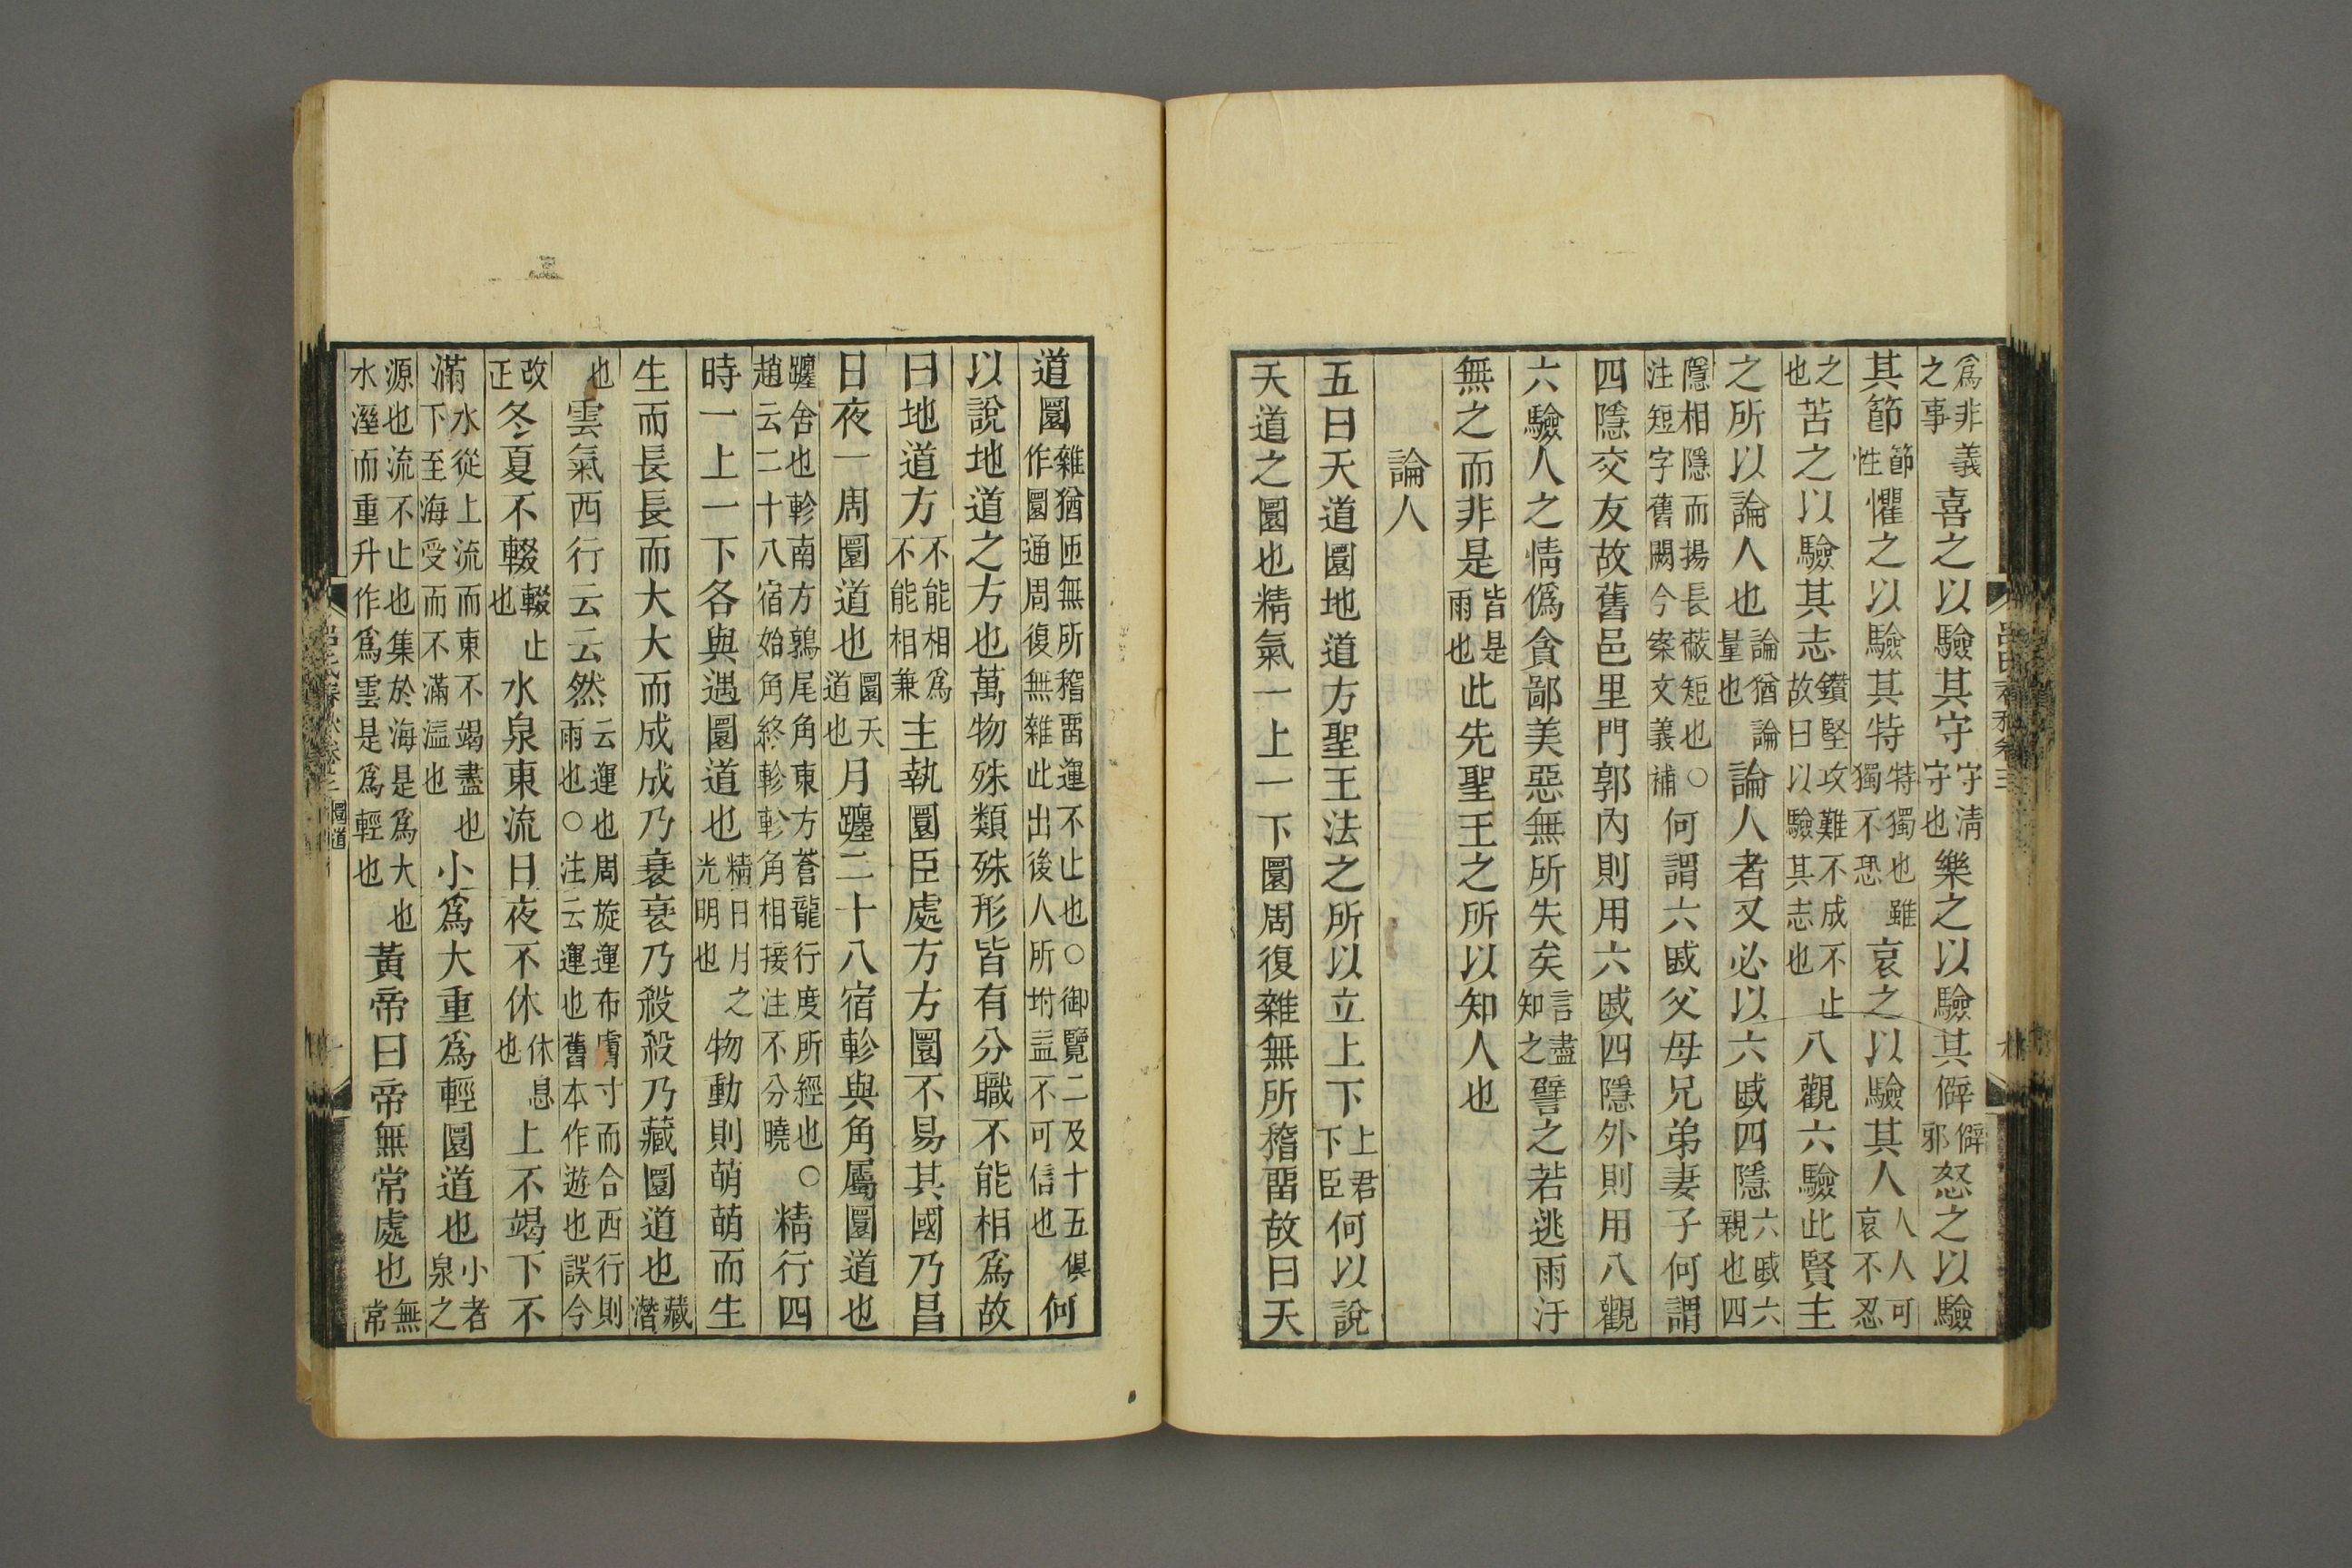 爲非義之事喜之以驗其守守淸守也樂之以驗其僻僻邪怒之以驗
其節節性懼之以驗其特特獨也雖獨不恐哀之以驗其人人人可哀不忍
之也苦之以驗其志鑽堅攻難不成不止故曰以驗其志也八觀六驗此賢主
之所以論人也論猶論量也論人者又必以六戚四隱六戚六親也四
隱相隱而揚長蔽短也○注短字舊闕今案文義補何謂六戚父母兄弟妻子何謂
四隱交友故舊邑里門郭內則用六戚四隱外則用八觀
六驗人之情僞貪鄙美惡無所失矣言盡知之譬之若逃雨汙
無之而非是皆是雨也此先聖王之所以知人也
論人
五曰天道圜地道方聖王法之所以立上下上君下臣何以說
天道之圜也精氣一上一下圜周復雜無所稽畱故曰天
道圜雜猶匝無所稽畱運不止也○御覽二及十五俱作圜通周復無雜此出後人所坿益不可信也何
以說地道之方也萬物殊類殊形皆有分職不能相爲故
曰地道方不能相爲不能相兼主執圜臣處方方圜不易其國乃昌
日夜一周圜道也圜天道也月躔二十八宿軫與角屬圜道也
躔舍也軫南方鶉尾角東方蒼龍行度所經也○趙云二十八宿始角終軫軫角相接注不分曉精行四
時一上一下各與遇圜道也精日月之光明也物動則萌萌而生
生而長長而大大而成成乃衰衰乃殺殺乃藏圜道也藏潛
也雲氣西行云云然云運也周旋運布膚寸而合西行則雨也○注云運也舊本作遊也誤今
改正冬夏不輟輟止也水泉東流日夜不休休息也上不竭下不
滿水從上流而東不竭盡也下至海受而不滿溢也小爲大重爲輕圜道也小者泉之
源也流不止也集於海是爲大也水溼而重升作爲雲是爲輕也黃帝曰帝無常處也無常
呂氏春秋卷三 圜道